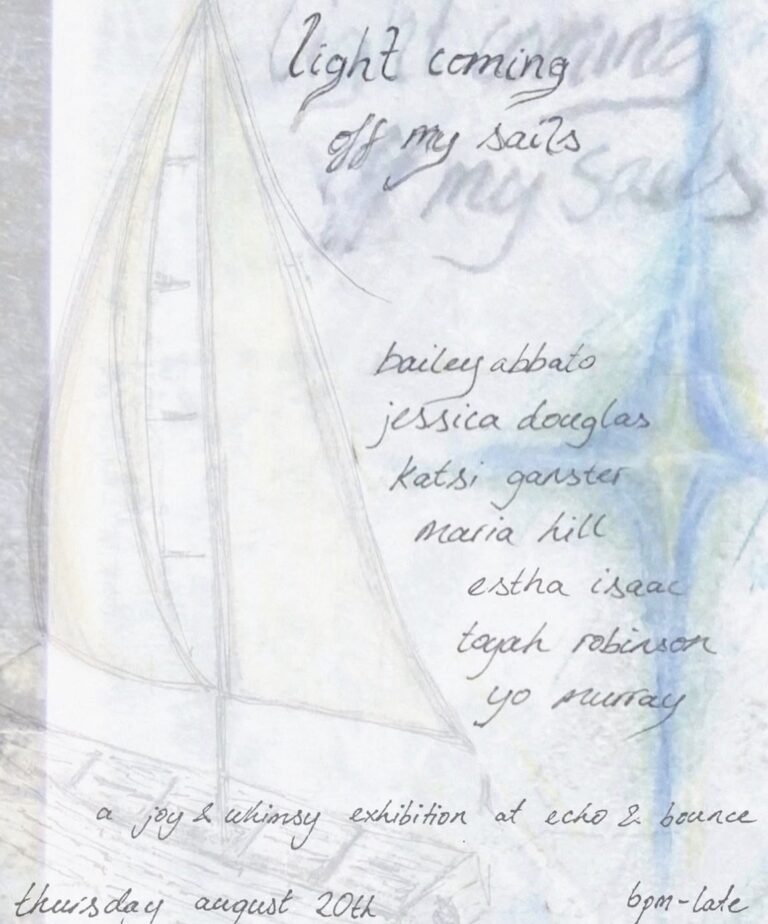 light coming
off my sails
light coming
off my sails
bailey abbato
jessica douglas
katsi ganster
maria hill
estha isaac
toyah robinson
yo murray
a joy & whimsy exhibition at echo & bounce
thursday august 20th
6pm-late